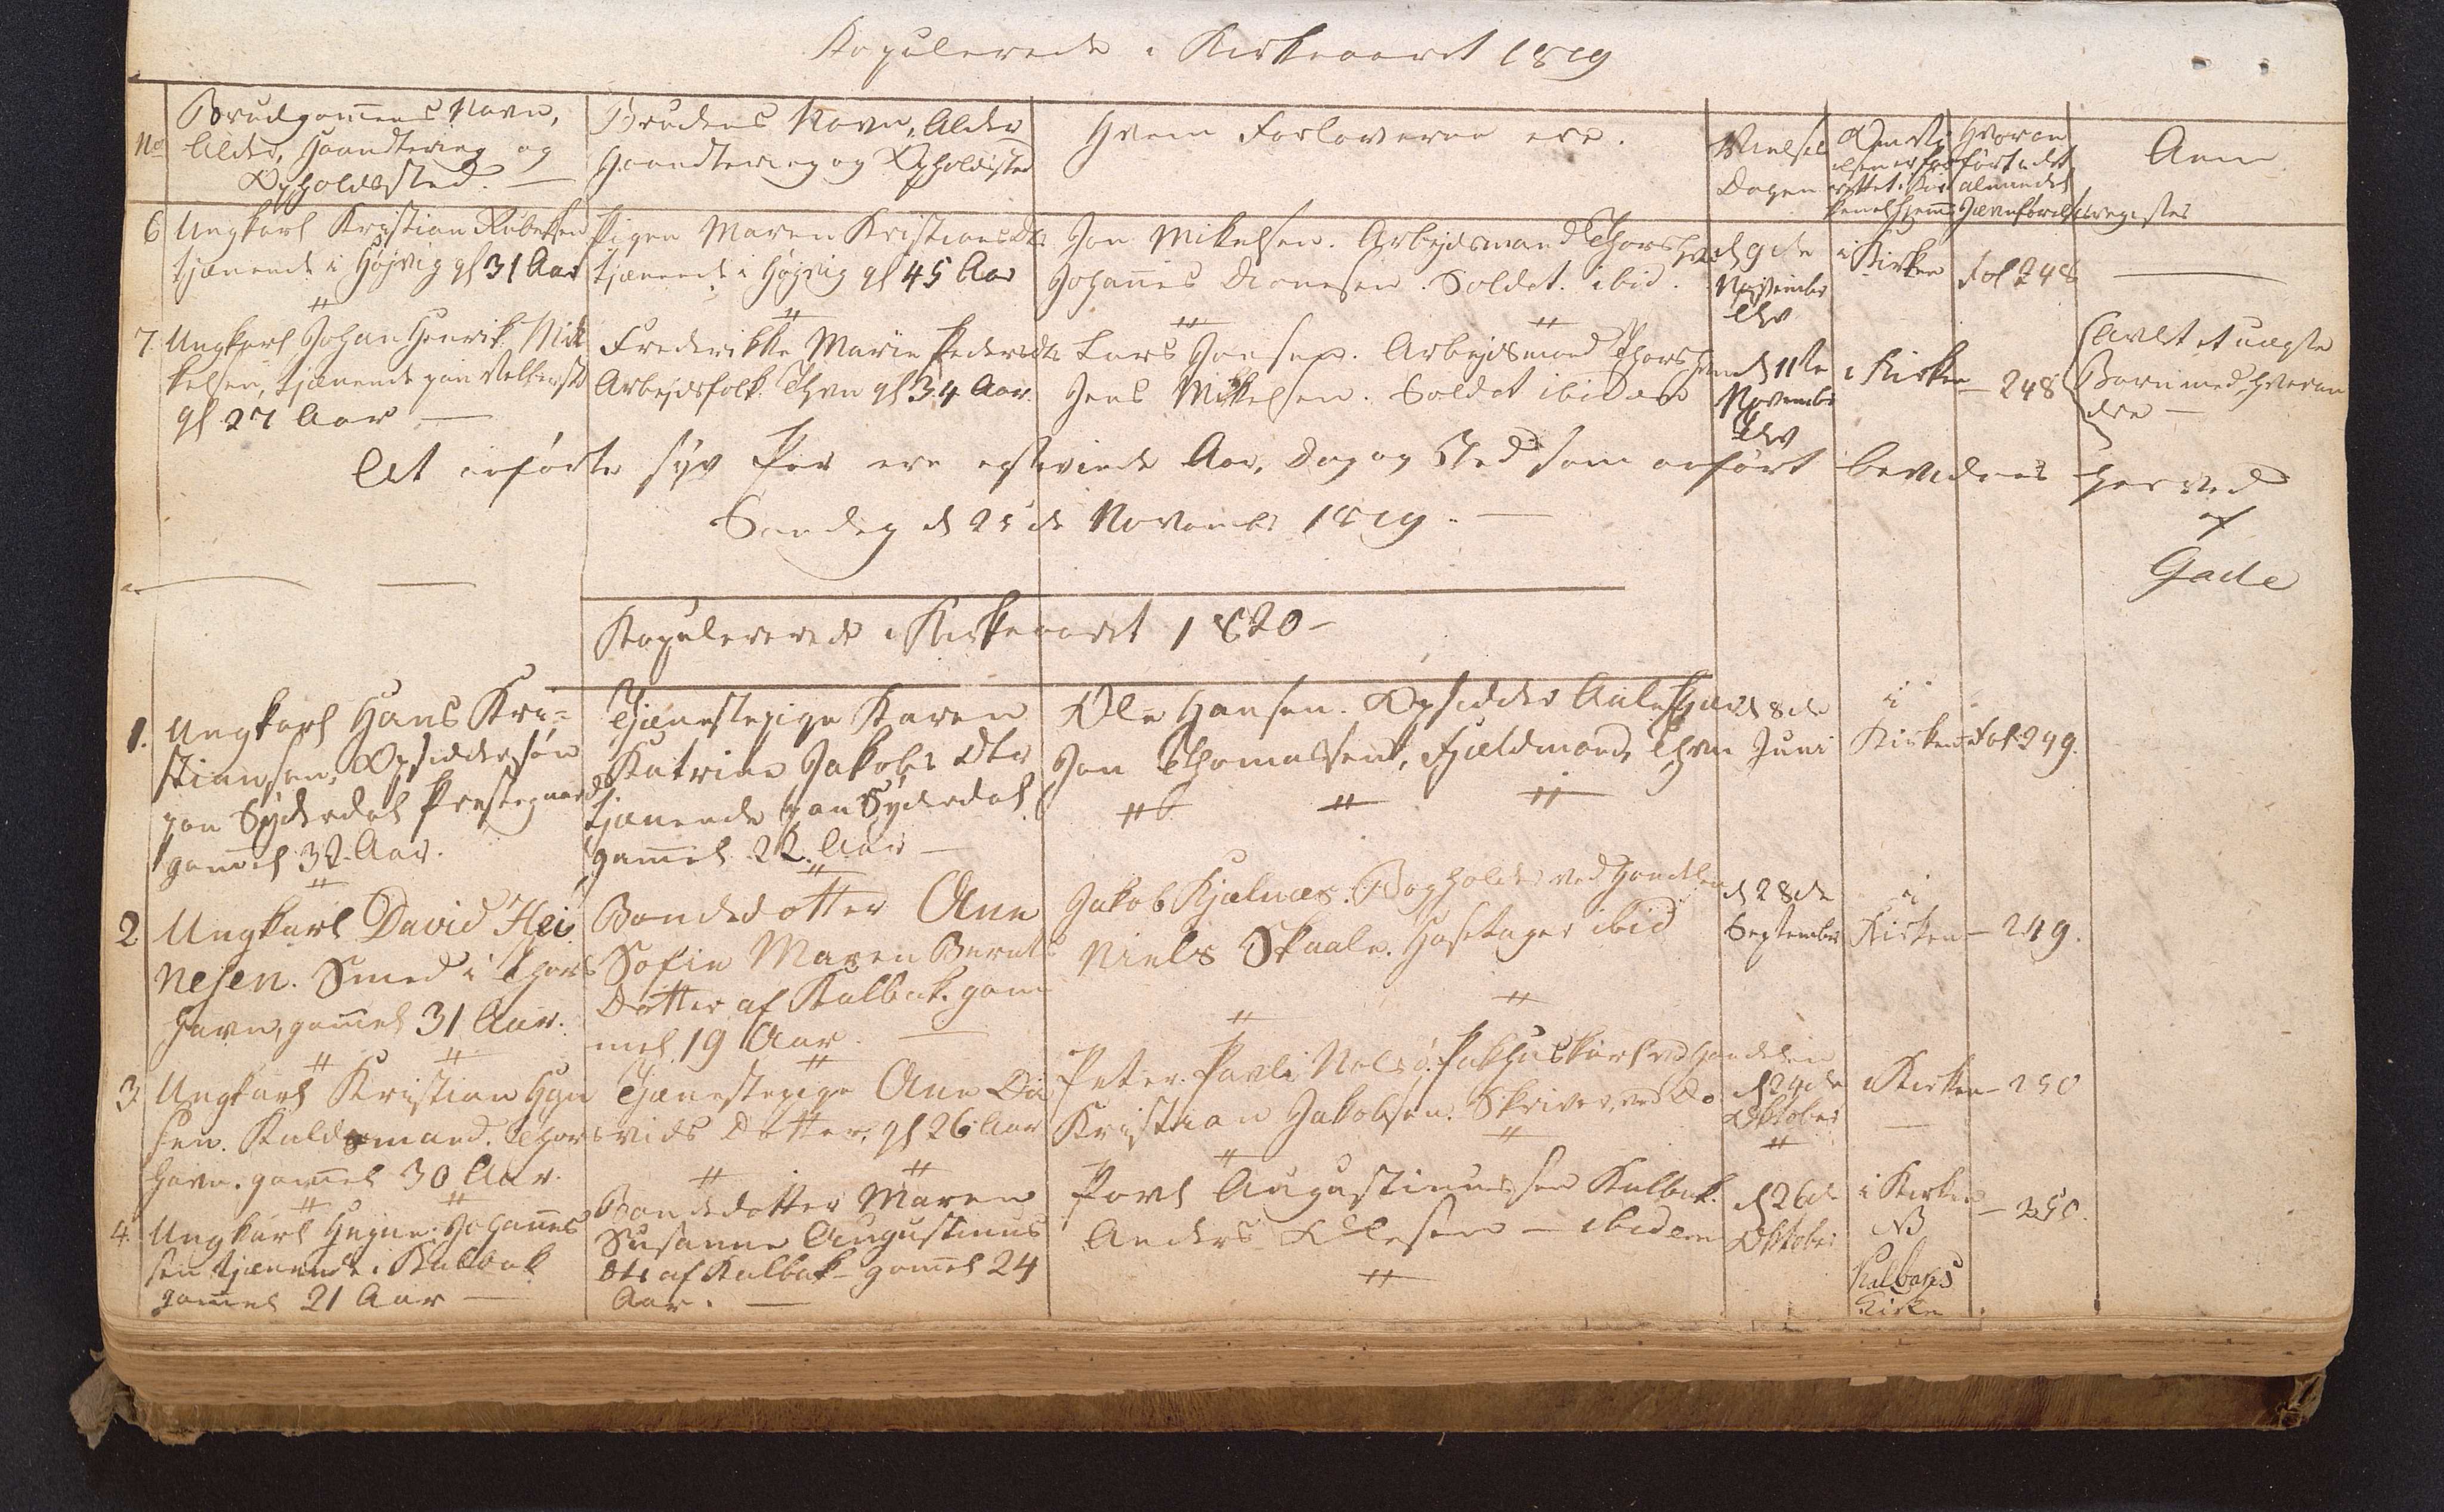 Kopulerede i Kirkeaaret 1819
No
Brudgom̄ens Navn,
Alder, Haandtering og
Opholdssted. —
Brudens Navn, Alder
Haandtering og Opholdssted
Hvem Forloverne ere.
Vielses
Dagen
Hvor
ført i det
almindel
Jævnførelsesregister
Anm
6 Ungkarl Kristian
tjenende i Højvig gl 31 Aar
Pigen Maren Kristiansdtr
tjenende i Højvig gl 45 Aar
Jon Mikelsen. Arbejdsmand Thorshavn
Johan̄es Dionesen. Soldat. ibid.
d 9de
November
i Kirken
Fol 248
7. Ungkarl Johan Henrik Mik
kelsen, tjenende paa
gl 27 Aar —
Frederikke Marie Pedersdtr
Arbejdsfolk Thvn gl 34 Aar.
Lars Joensen. Arbejdsmand Thorshavn
Jens Mikkelsen. Soldat ibidem
d 11te
November
i Kirken
— 248
Avlet et uægte
Barn med hveran
dre —
At anførte syv Par ere egteviede Aar, Dag og Sted som anført bevidnes herved
Søndag d 25de Novembr 1819. —
af
Gade
Kopulerede i Kirkeaaret 1820 —
1. Ungkarl Hans Kri=
stiansen, Opsiddersøn
paa Syderdal Prestegaard
gam̄el 32 Aar.
Tjenestepige Karen
Katrine Jakobs Dtr
tjenende paa Syderdal
gam̄el 22 Aar —
Ole Hansen. Opsidder
Jon Thomassen, Fjældmand, Thvn
d 8de
Juni
i
Kirken
Fol: 249.
2 Ungkarl David Hei
nesen. Smed i Thors
havn, gam̄el 31 Aar.
Bondedotter Ane
Sofie Maren Bernts
Dotter af Kalbak. gam
mel 19 Aar. —
Jakob Kjelnæs. Bogholder ved Handelen
Niels Skaale. Hosetager ibid
d 28de
September
i
Kirken
— 249.
3 Ungkarl Kristian Han
sen. Kuldsmand. Thors
havn. gam̄el 30 Aar.
Tjenestepige Ane Da
vids Dotter, gl 26 Aar
Peter Pavli Nolsø. Pakhuskarl ved Handelen
Kristian Jakobsen. Skriver ved Do
d 24de
Oktober
i Kirken
— 250
4. Ungkarl Hejne Johan̄es
sen tjenende i Kalbak
gam̄el 21 Aar —
Bondedotter Maren
Susanne Augustinus
Dtr af Kalbak — gam̄el 24
Aar. —
Povl Augustinussen Kalbak.
Anders Olesen — ibidem
d 26de
Oktober
i Kirken
NB
Kalbaks
Kirke
— 250.